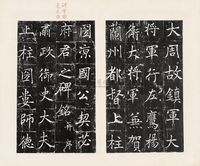 大周故鎮軍大
將軍行左鷹揚
衛大將軍兼賀
蘭州都督上柱
國涼國公契苾
府君之碑銘并序
肅政御史大夫
上柱國婁師德